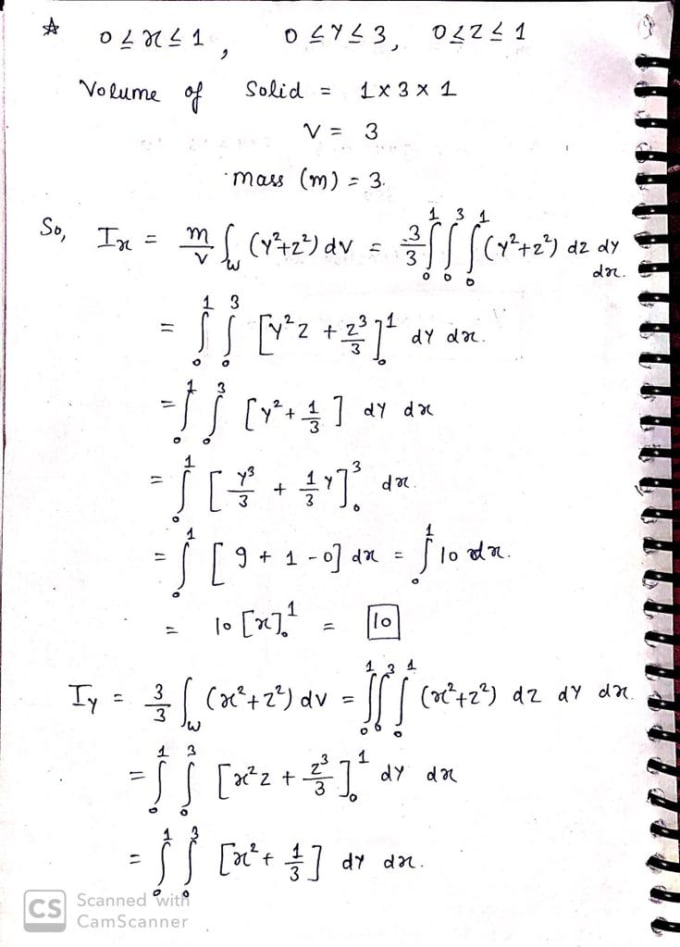 ☆ 0≤x≤1, 0≤Y≤3, 0≤Z≤1
Volume of Solid = 1×3×1
V = 3
mass (m) = 3.
So, Ix = m/V ∫_W (Y²+Z²) dV = 3/3 ∫₀¹ ∫₀³ ∫₀¹ (Y²+Z²) dz dy dx.
= ∫₀¹ ∫₀³ [Y²Z + Z³/3]₀¹ dY dx.
= ∫₀¹ ∫₀³ [Y² + 1/3] dY dx
= ∫₀¹ [Y³/3 + 1/3 Y]₀³ dx.
= ∫₀¹ [9 + 1 - 0] dx = ∫₀¹ 10 dx.
= 10 [x]₀¹ = 10
Iy = 3/3 ∫_W (x²+Z²) dV = ∫₀¹ ∫₀³ ∫₀¹ (x²+Z²) dz dY dx.
= ∫₀¹ ∫₀³ [x²z + Z³/3]₀¹ dY dx
= ∫₀¹ ∫₀³ [x² + 1/3] dY dx.
CS Scanned with
CamScanner